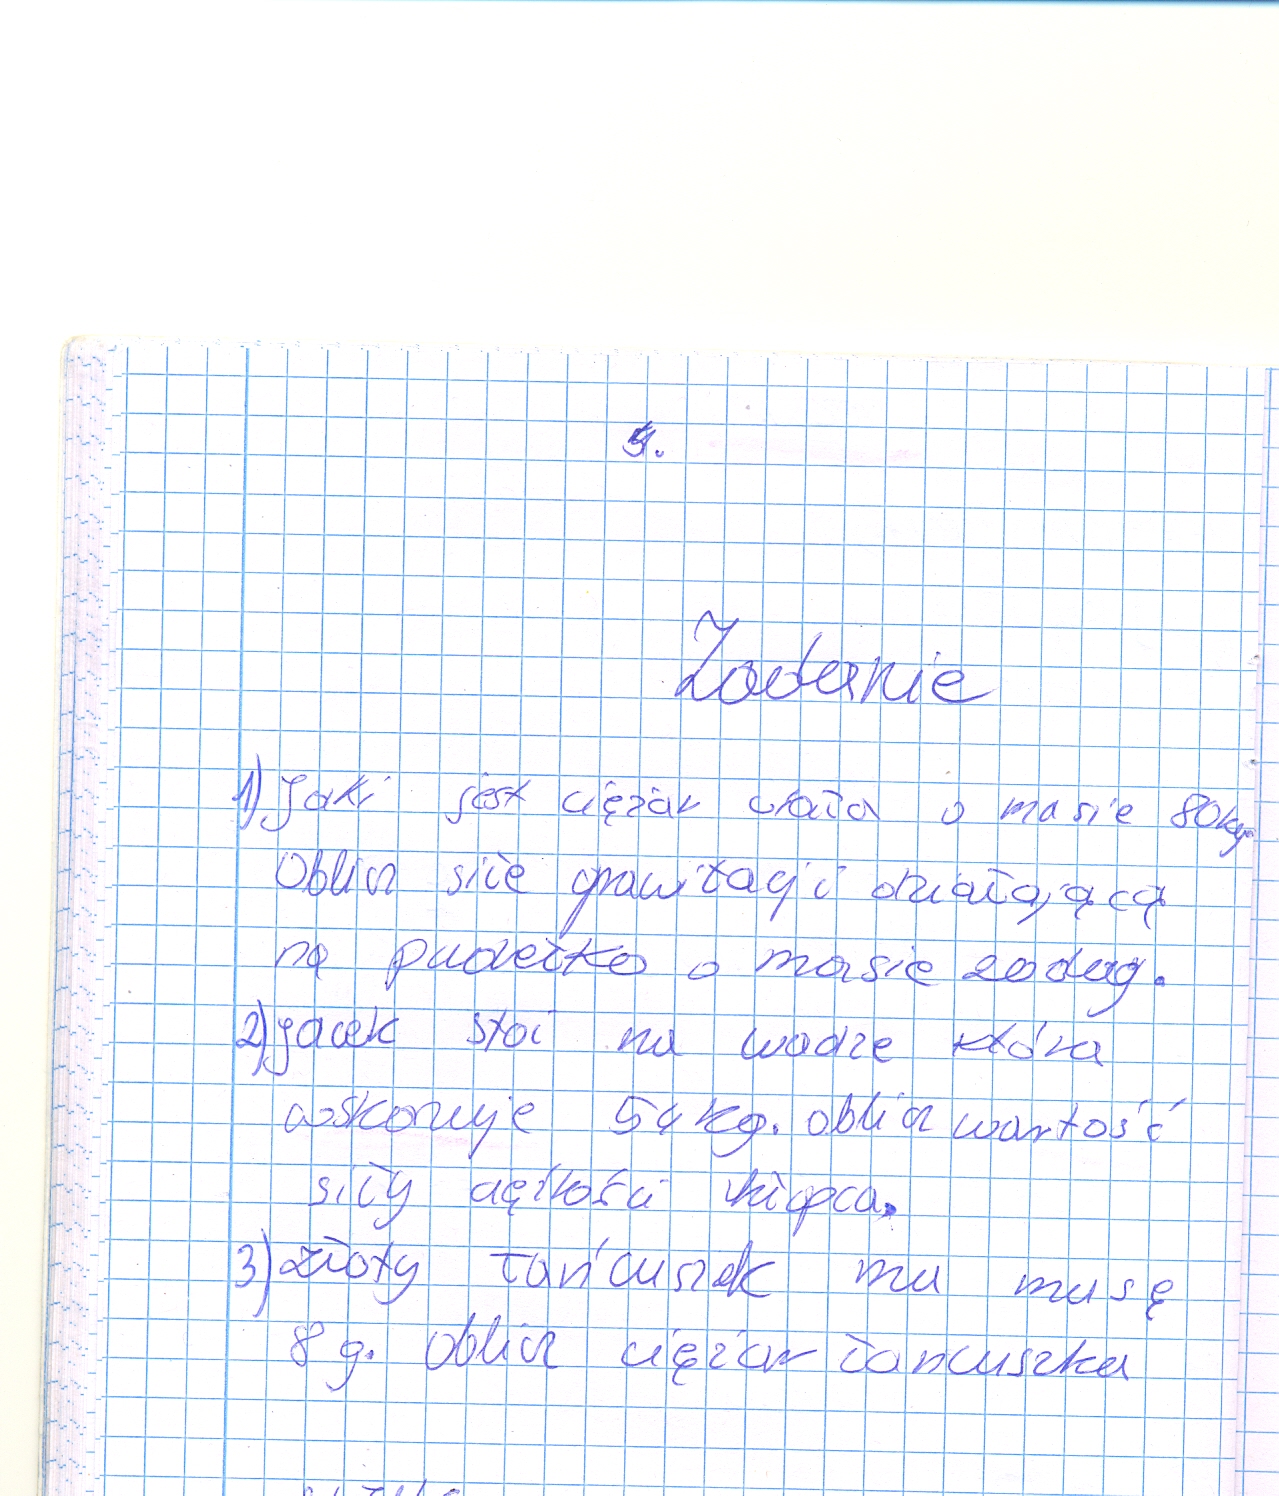 4.
Zadanie
1) Jaki jest ciężar ciała o masie 80kg.
Oblicz siłę grawitacji działającą
na pudełko o masie 20dag.
2) Jacek stoi na wadze która
wskazuje 54kg. oblicz wartość
siły ciężkości chłopca.
3) złoty łańcuszek ma masę
8g. Oblicz ciężar łancuszka